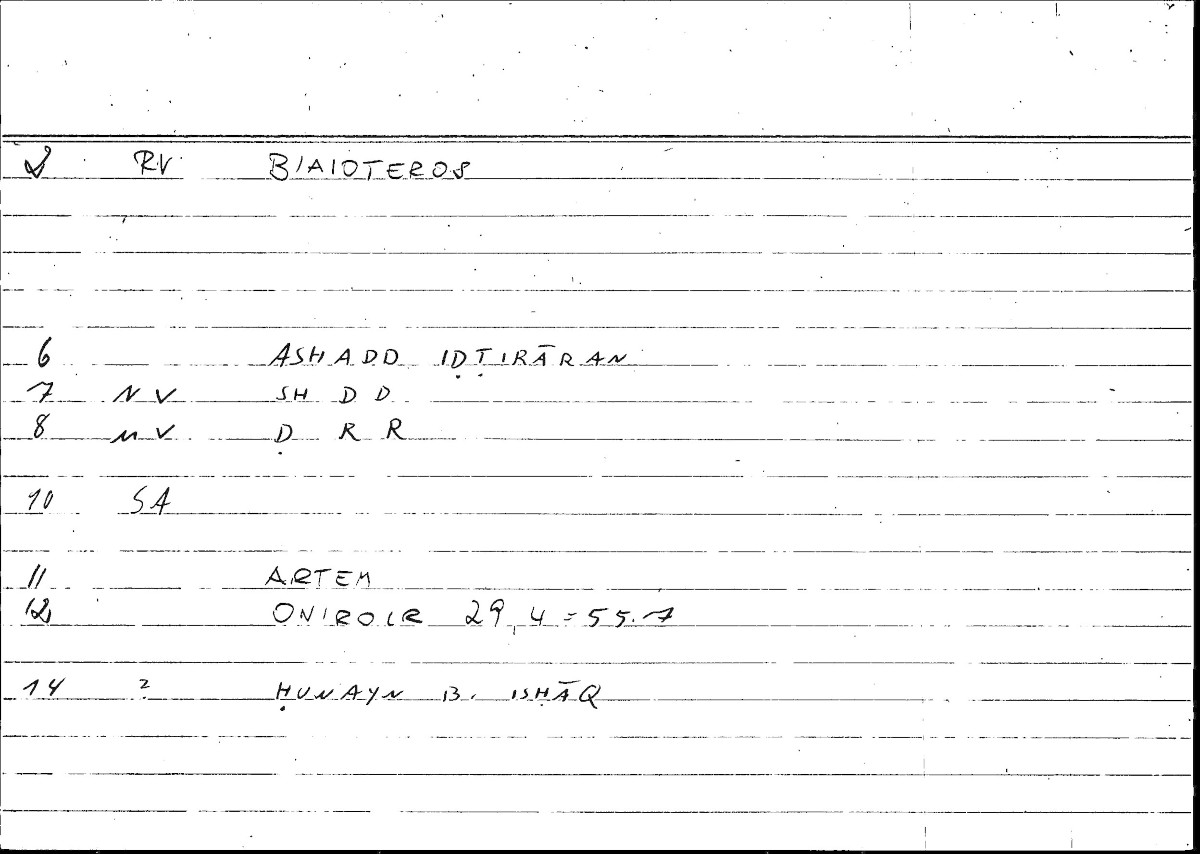 2 RV BIAIOTEROS
6 ASHADD IḌṬIRĀRAN
7 NV SH D D
8 NV Ḍ R R
10 SA
11 ARTEM
12 ONIROCR 29,4 = 55.7
14 ? ḤUNAYN B. ISḤĀQ